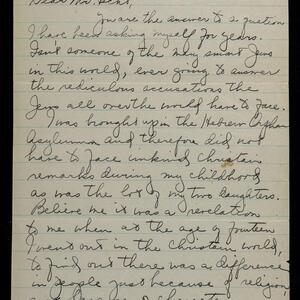 Dear Mr. Hecht,
You are the answer to a question
I have been asking myself for years.
Isn't someone of the many smart Jews
in this world, ever going to answer
the rediculous accusations the
Jews all over the world have to face.
I was brought up in the Hebrew Orphan
Asylumn and therefore did not
have to face unkind christain
remarks during my childhood
as was the lot of my two daughters.
Believe me it was a revelation
to me when at the age of fourteen
I went out in the christain world,
to find out there was a difference
in people just because of religion,